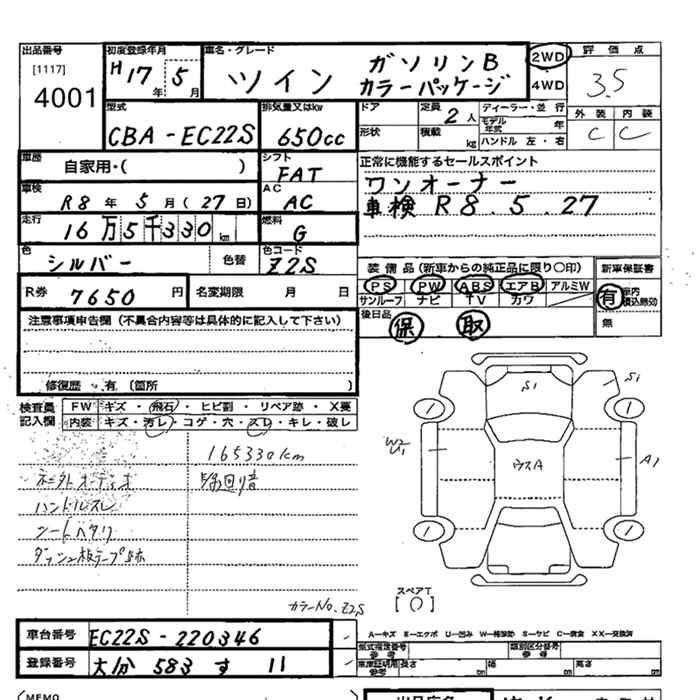 出品番号
[1117]
4001
初度登録年月
H17年 5月
車名・グレード
ツイン ガソリンB
カラーパッケージ
2WD
4WD
評価点
3.5
外装 内装
C C
型式
CBA-EC22S
排気量又はkw
650cc
ドア
形状
定員
2人
積載 kg
ディーラー・並行
モデル年式 年
ハンドル 左・右
車歴
自家用・( )
シフト
FAT
車検
R8年 5月(27日)
AC
AC
走行
16万5千330km
燃料
G
色
シルバー
色替
色コード
Z2S
正常に機能するセールスポイント
ワンオーナー
車検 R8.5.27
R券
7650円
名変期限 月 日
装備品(新車からの純正品に限り○印)
PS PW ABS エアB アルミW
サンルーフ ナビ TV カワ
後日品
保 取
新車保証書
有
無
注意事項申告欄(不具合内容等は具体的に記入して下さい)
修復歴・有(箇所 )
検査員記入欄
FW キズ・飛石・ヒビ割・リペア跡・X要
内装 キズ・汚レ・コゲ・穴・スレ・キレ・破レ
165330km
ハンドルスレ
シートヘタリ
S1
S1
W2
U1
A1
ウスA
スペアT
[ ]
カラーNo. Z2S
車台番号
EC22S-220346
登録番号
大分 583 す 11
A-キズ E-エクボ U-凹み W-補修跡 S-サビ C-腐食 XX-交換済
型式指定番号
参考
類別区分番号
参考
車庫証明用
参考
長さ cm
幅 cm
高さ cm
MEMO
出品店名